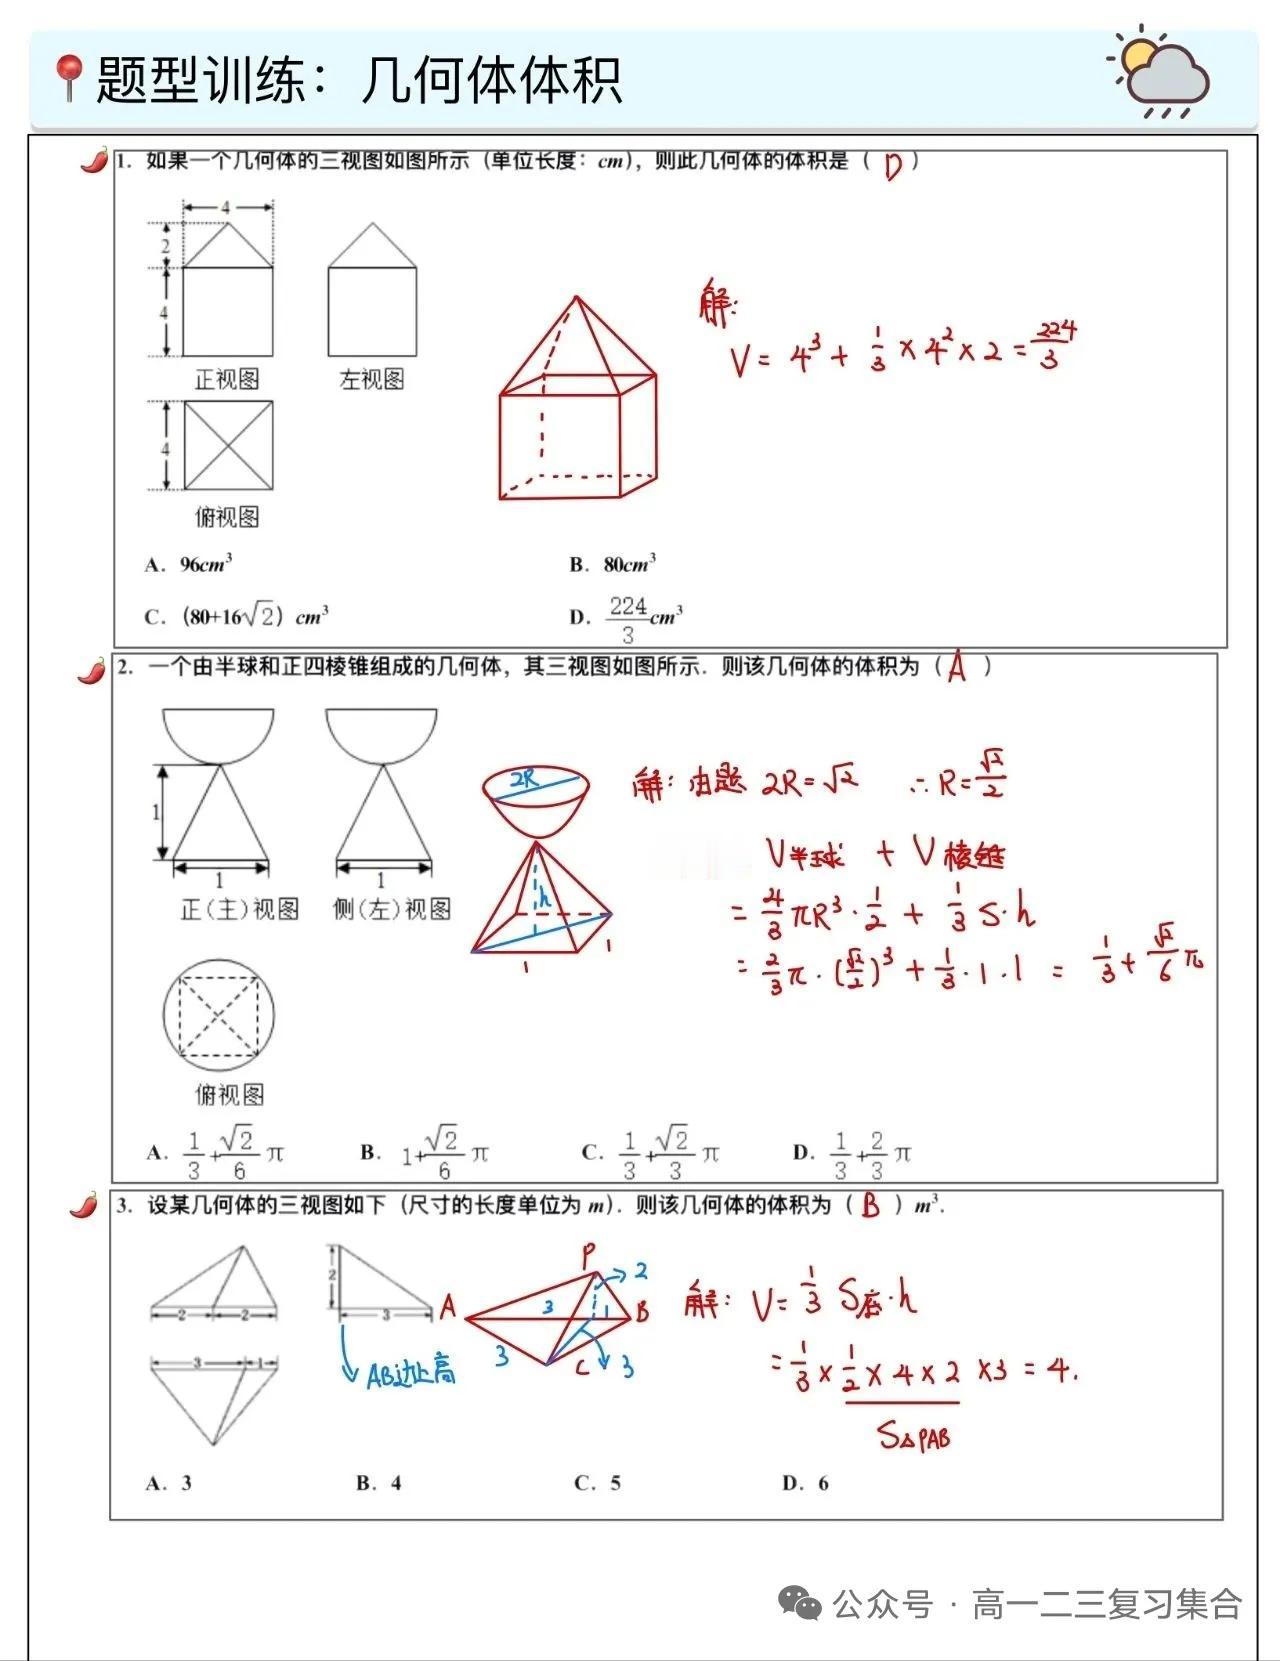 题型训练：几何体体积
1. 如果一个几何体的三视图如图所示（单位长度：cm），则此几何体的体积是（ D ）
4
2
4
正视图
左视图
4
俯视图
解：
V = 4³ + 1/3 × 4² × 2 = 224/3
A. 96cm³
B. 80cm³
C. (80+16√2) cm³
D. 224/3 cm³
2. 一个由半球和正四棱锥组成的几何体，其三视图如图所示. 则该几何体的体积为（ A ）
1
1
1
正(主)视图
侧(左)视图
俯视图
2R
h
1
1
解：由题 2R=√2 ∴R=√2/2
V半球 + V棱锥
= 4/3 πR³ · 1/2 + 1/3 S·h
= 2/3 π · (√2/2)³ + 1/3 · 1 · 1 = 1/3 + √2/6 π
A. 1/3+√2/6 π
B. 1+√2/6 π
C. 1/3+√2/3 π
D. 1/3+2/3 π
3. 设某几何体的三视图如下（尺寸的长度单位为 m）. 则该几何体的体积为（ B ）m³.
2
2
2
3
3
1
AB边上高
P
A
B
C
2
3
1
3
3
解：V = 1/3 S底·h
= 1/3 × 1/2 × 4 × 2 × 3 = 4.
S△PAB
A. 3
B. 4
C. 5
D. 6
公众号 · 高一二三复习集合